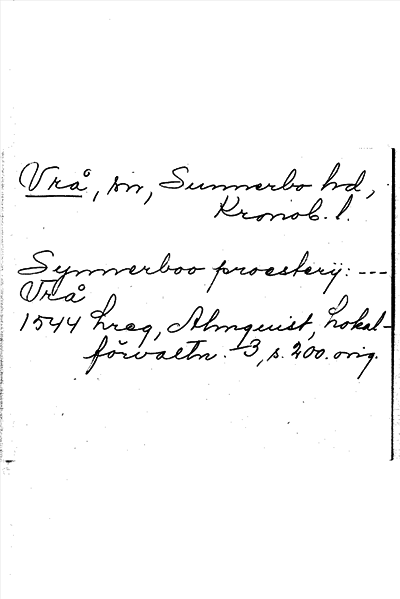 Vrå, sn, Sunnerbo hd,
Kronob. l.
Synnerboo proesterij: ---
Vrå
1544 hreg, Almquist, Lokal-
förvaltn. -3, s. 200. orig.